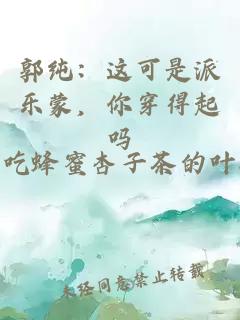 郭纯：这可是派
乐蒙，你穿得起
吗
吃蜂蜜杏子茶的叶
未经同意禁止转载